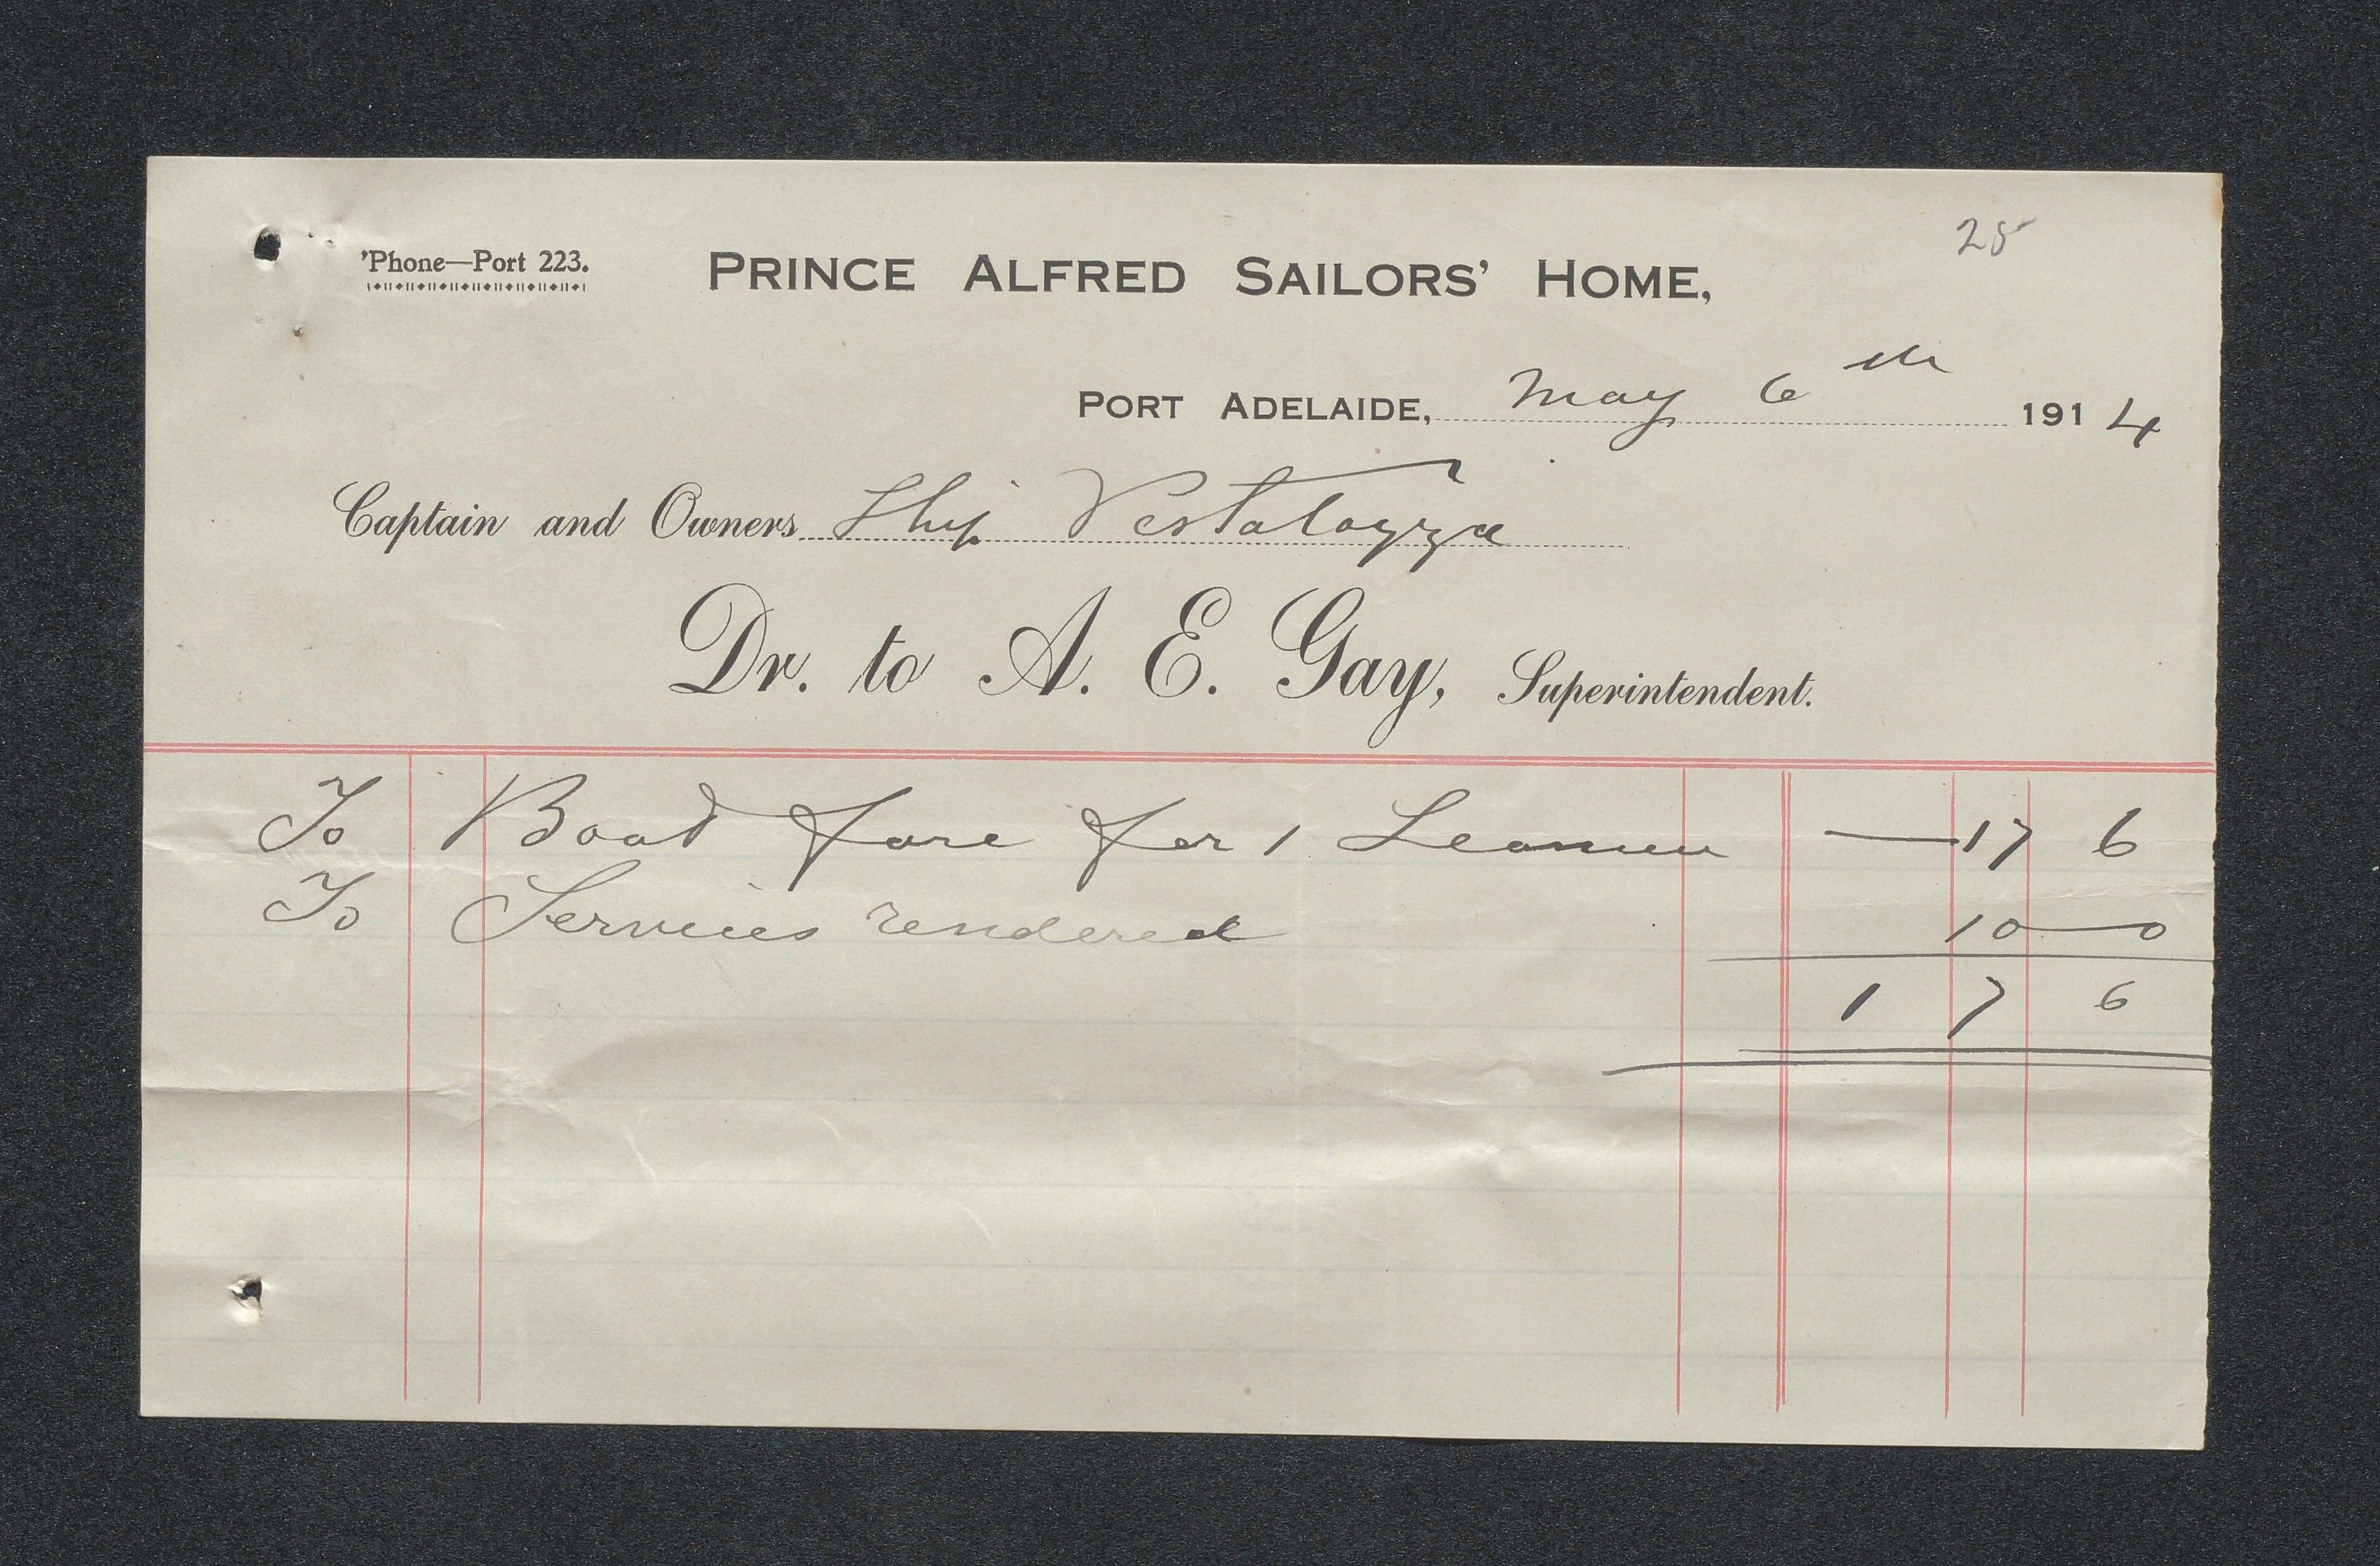 25
'Phone—Port 223.
PRINCE ALFRED SAILORS' HOME,
PORT ADELAIDE, May 6th 1914
Captain and Owners Ship Pestalozza
Dr. to A. E. Gay, Superintendent.
To Boat fare for 1 Seamen — 17 6
To Services rendered 10 — 0
1 7 6